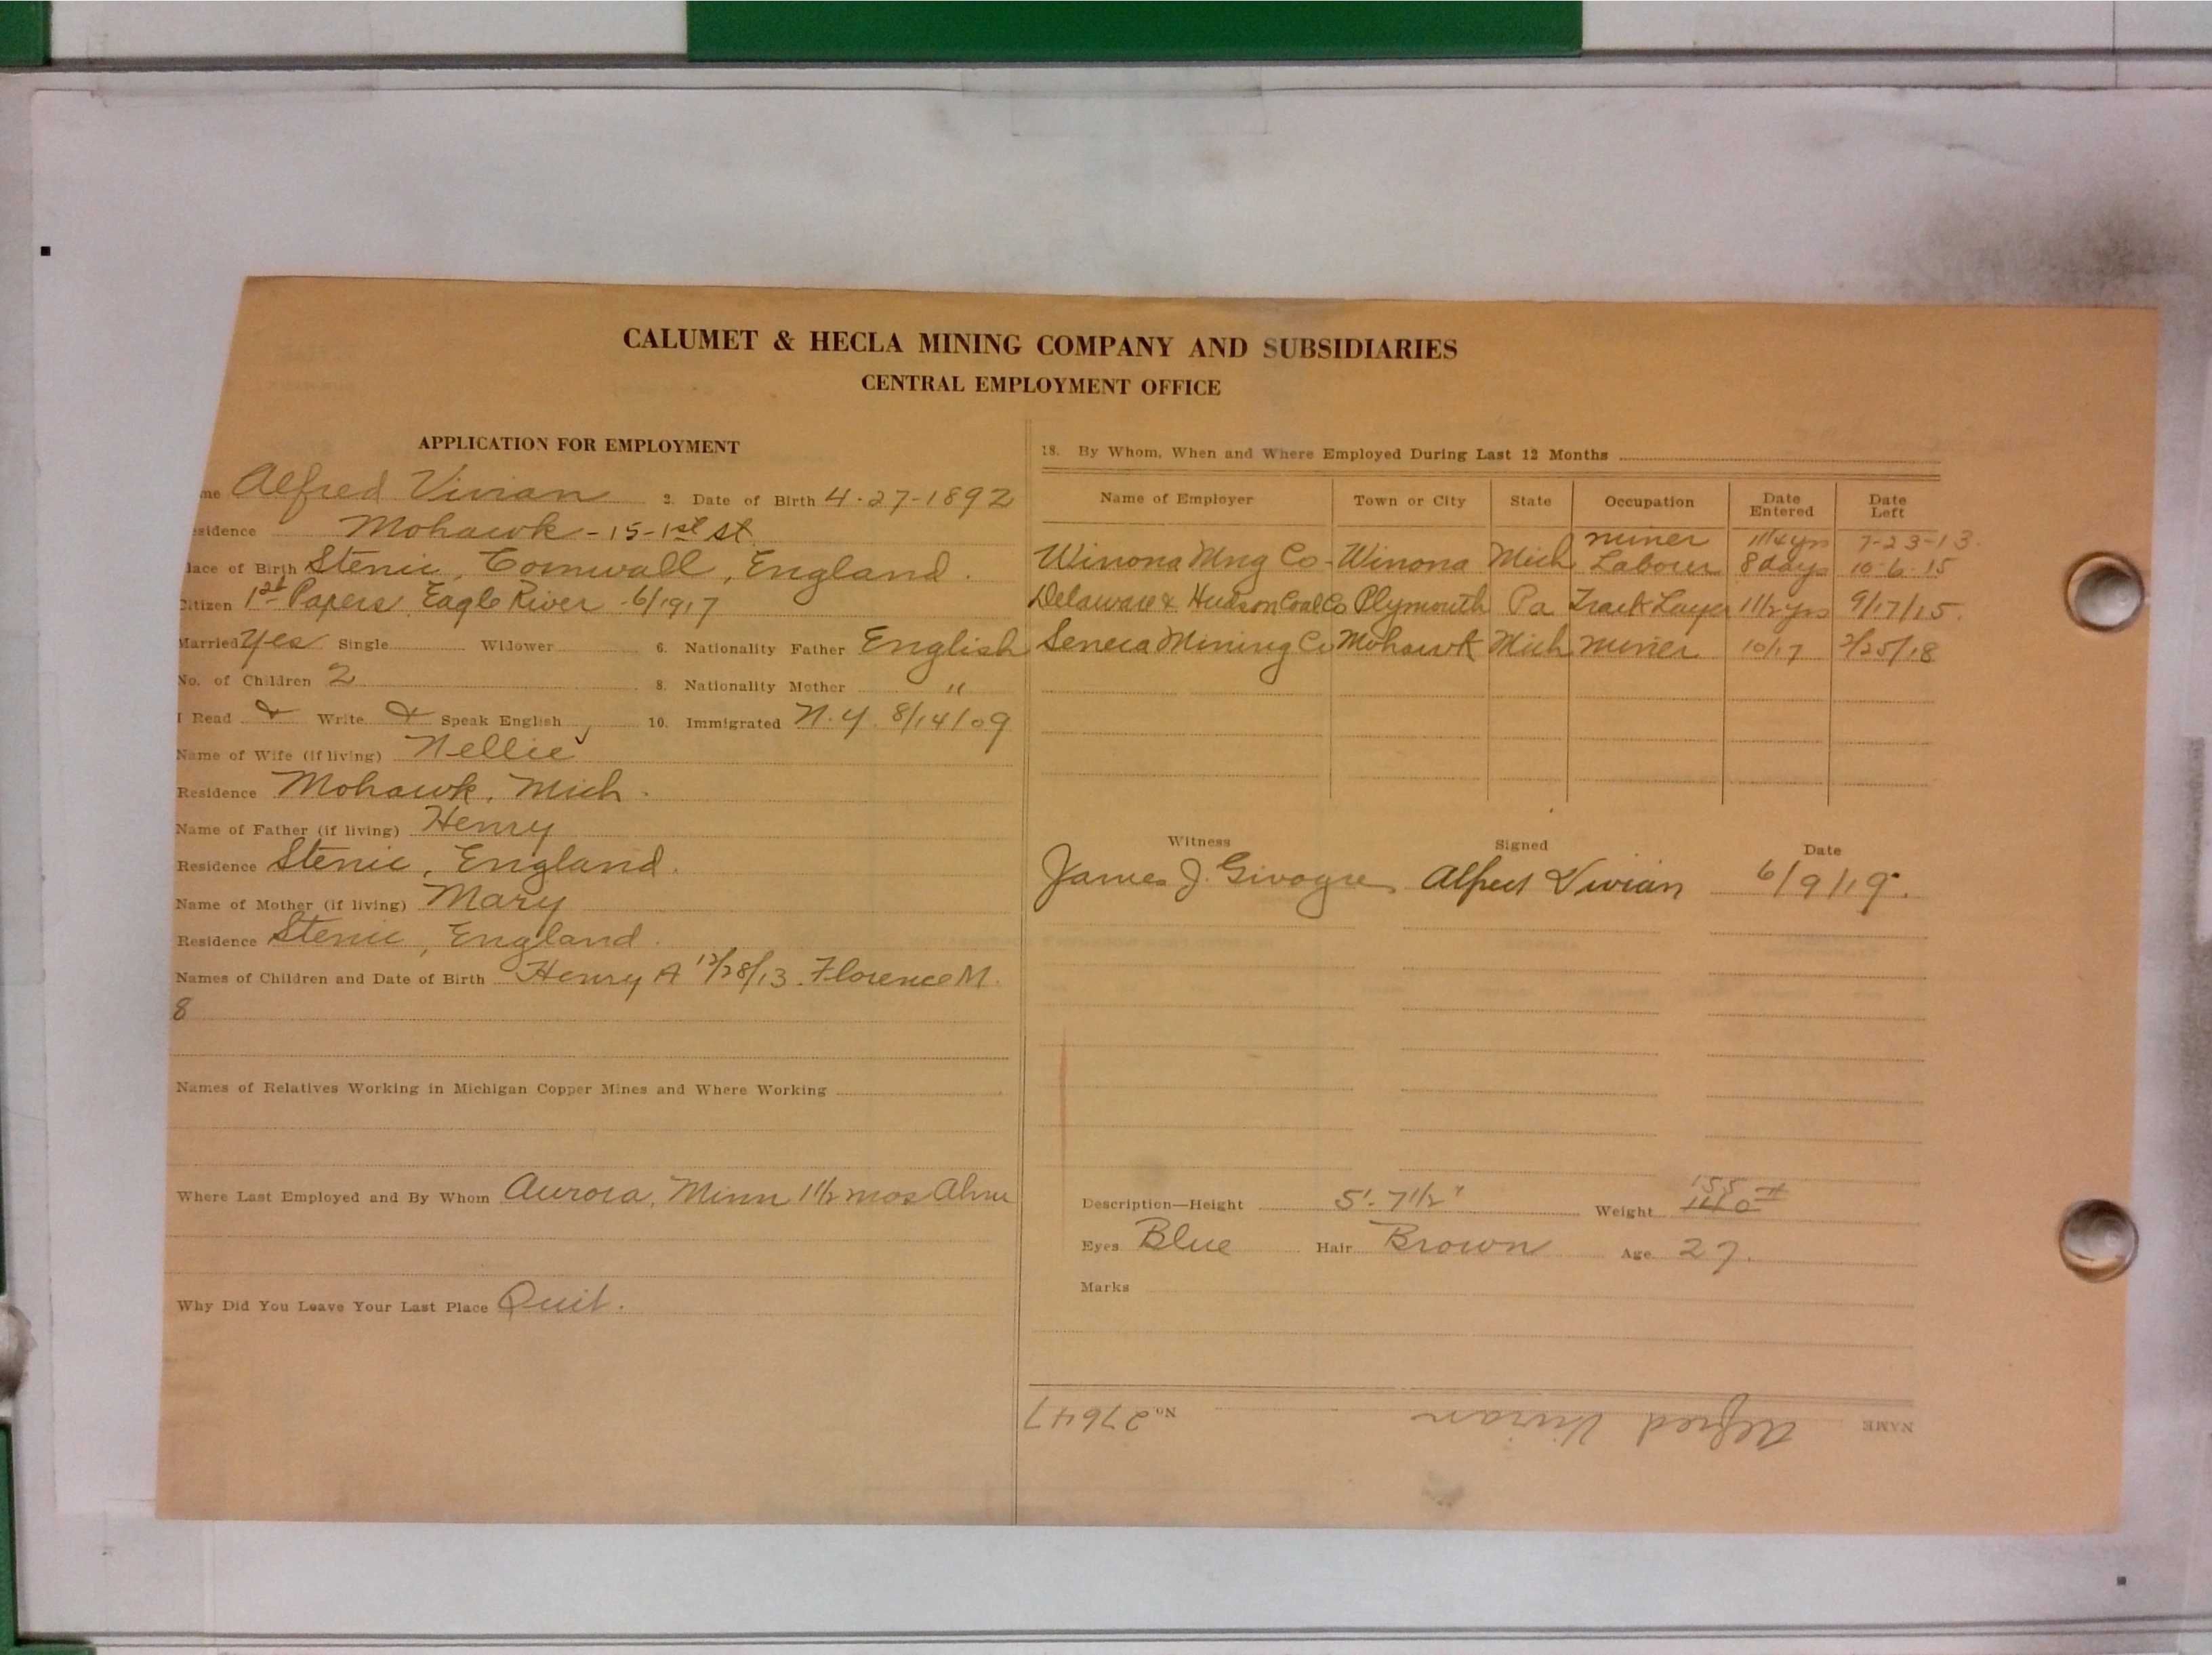 CALUMET & HECLA MINING COMPANY AND SUBSIDIARIES
CENTRAL EMPLOYMENT OFFICE
APPLICATION FOR EMPLOYMENT
me Alfred Vivian 2. Date of Birth 4-27-1892
sidence Mohawk - 15 - 1st St.
lace of Birth Stenic, Cornwall, England.
Citizen 1st Papers Eagle River 6/1917
Married Yes Single Widower 6. Nationality Father English
No. of Children 2 8. Nationality Mother "
I Read & Write & Speak English 10. Immigrated N.Y. 8/14/09
Name of Wife (if living) Nellie
Residence Mohawk, Mich.
Name of Father (if living) Henry
Residence Stenic, England.
Name of Mother (if living) Mary
Residence Stenic, England.
Names of Children and Date of Birth Henry A 12/28/13. Florence M.
8
Names of Relatives Working in Michigan Copper Mines and Where Working
Where Last Employed and By Whom Aurora, Minn 1 1/2 mos
Why Did You Leave Your Last Place Quit.
18. By Whom, When and Where Employed During Last 12 Months
Name of Employer Town or City State Occupation Date Entered Date Left
miner 1 1/4 yrs 7-23-13.
Winona Mng Co - Winona Mich Laborer 8 days 10-6-15
Delaware & Hudson Coal Co Plymouth Pa Track Layer 1 1/2 yrs 9/17/15.
Seneca Mining Co Mohawk Mich miner 10/17 2/25/18
Witness Signed Date
James J. Alfred Vivian 6/9/19.
Description—Height 5'. 7 1/2" Weight 155 140#
Eyes Blue Hair Brown Age 27.
Marks
NAME Alfred Vivian No. 27647